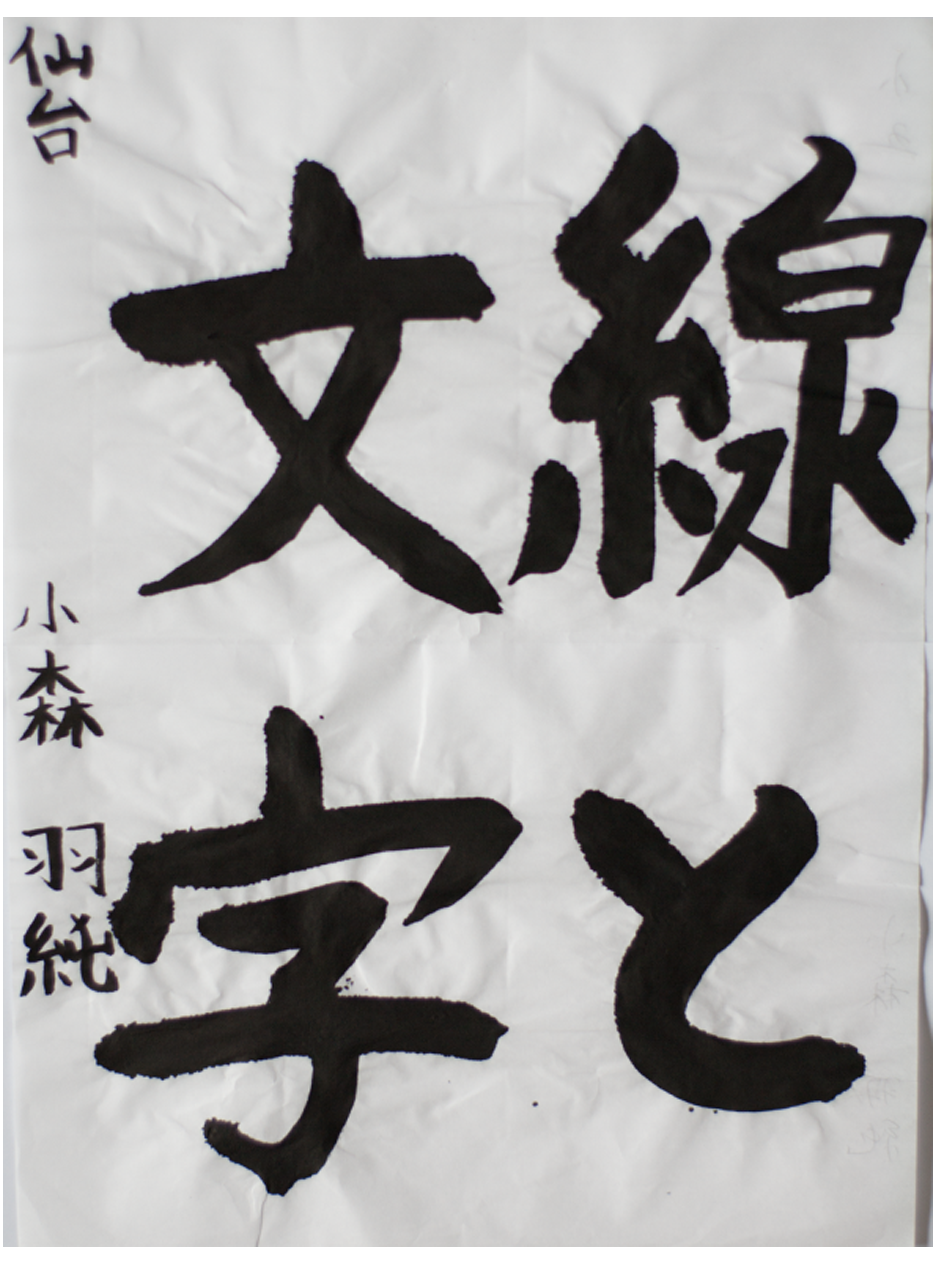 線と
文字
仙台
小森 羽純